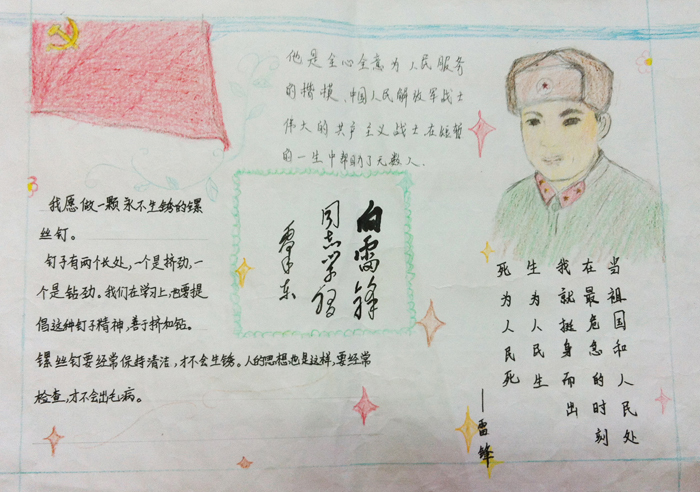 他是全心全意为人民服务
的楷模、中国人民解放军战士
伟大的共产主义战士在短暂
的一生中帮助了无数人.
我愿做一颗永不生锈的螺
丝钉。
钉子有两个长处,一个是挤劲,一
个是钻劲。我们在学习上,也要提
倡这种钉子精神,善于挤和钻。
螺丝钉要经常保持清洁,才不会生锈。人的思想也是这样,要经常
检查,才不会出毛病。
向雷锋
同志学习
毛泽东
当祖国和人民处
在最危急的时刻
我就挺身而出
生为人民生
死为人民死
——雷锋